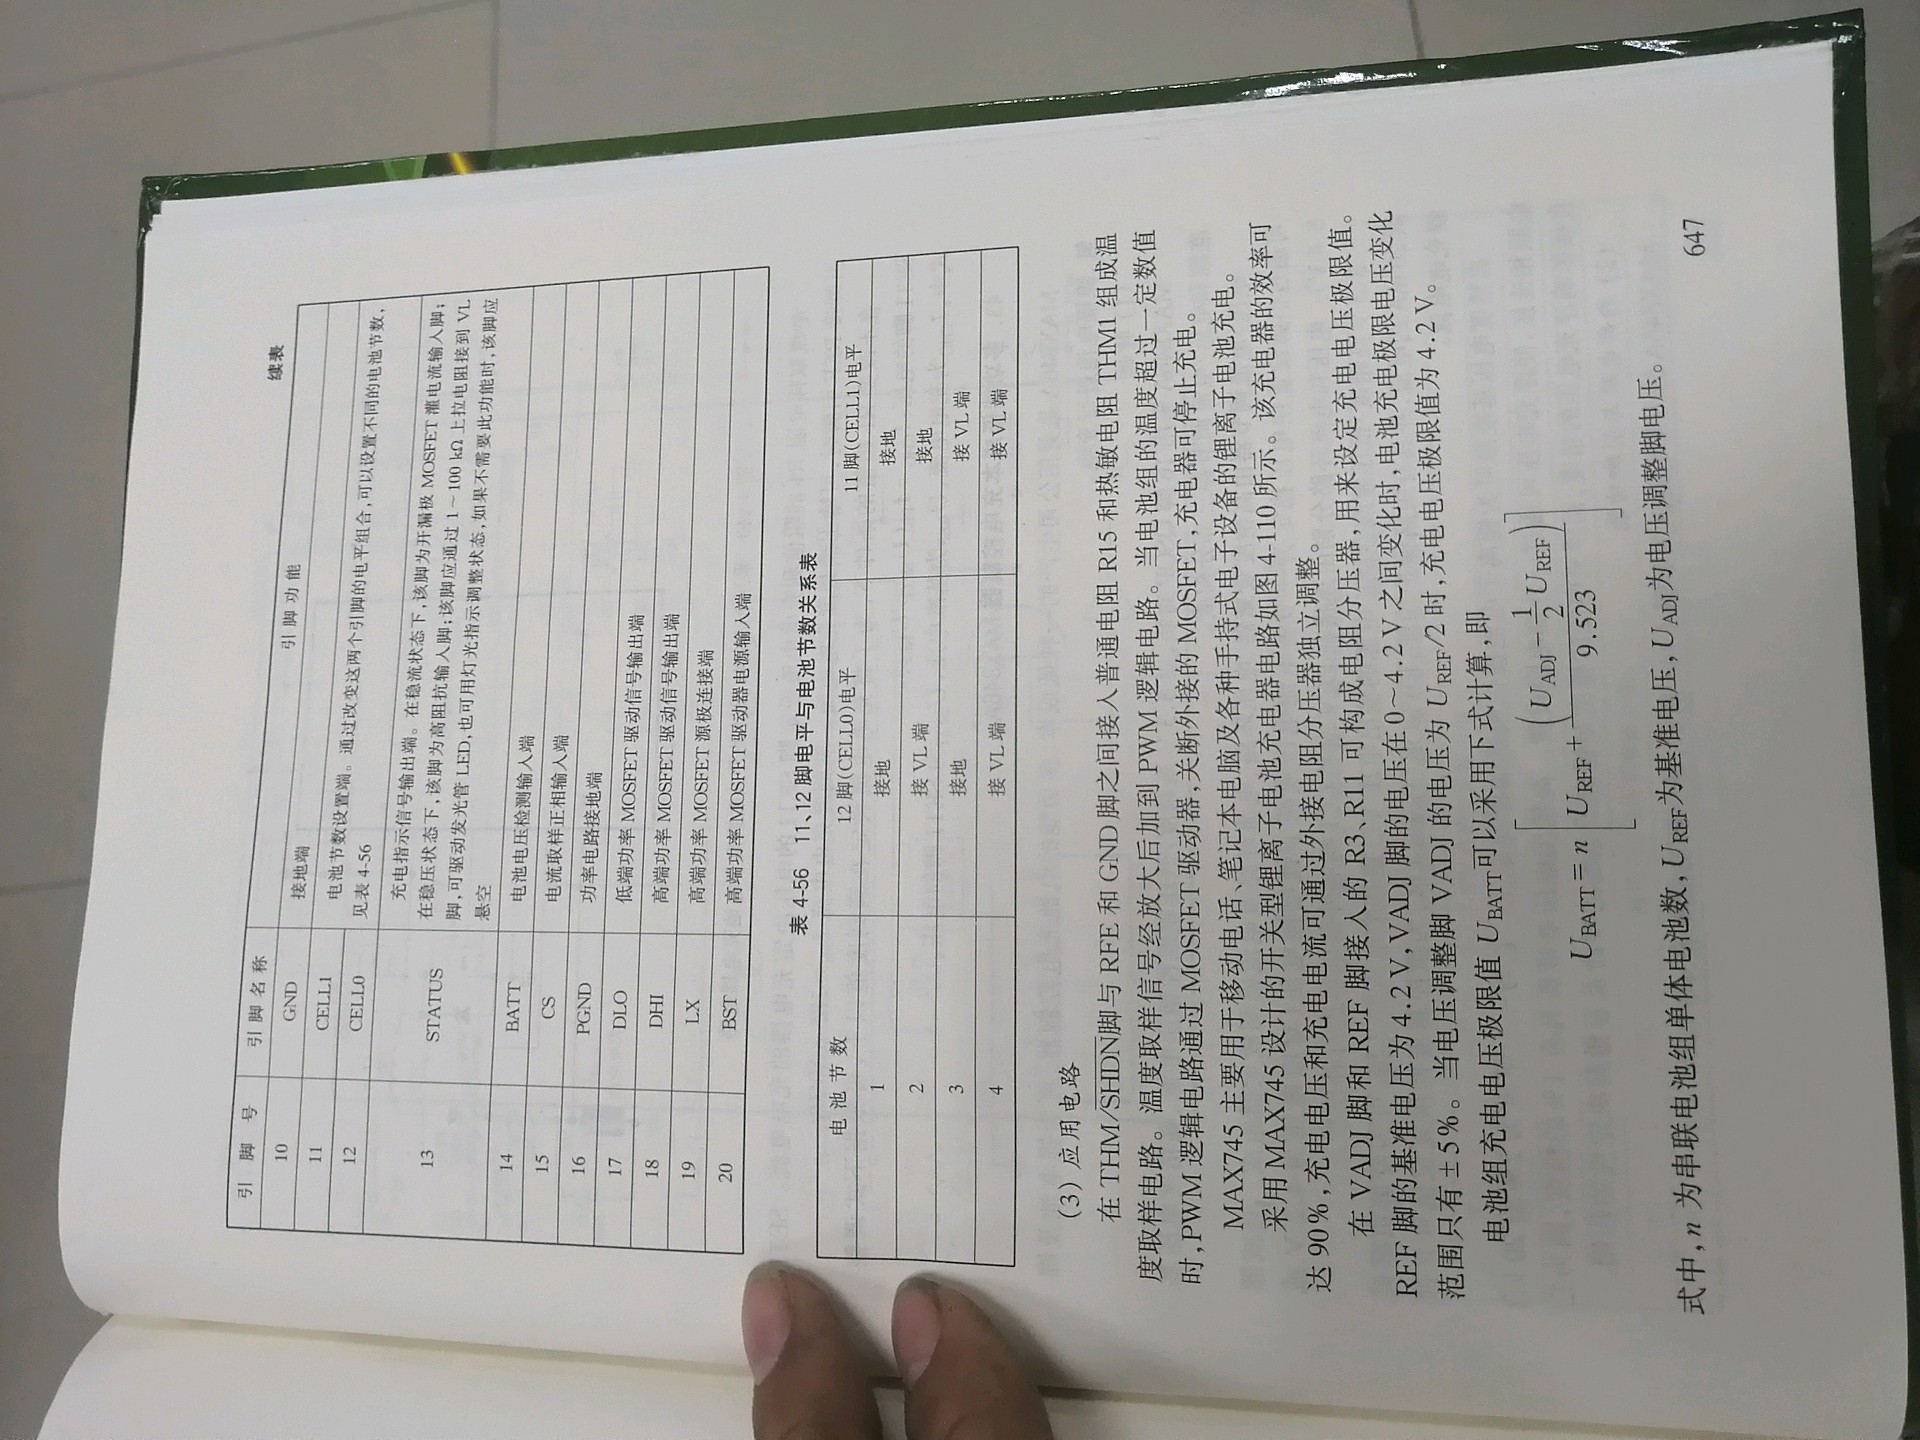 续表
引 脚 号 引 脚 名 称 引 脚 功 能
10 GND 接地端
11 CELL1 电池节数设置端。通过改变这两个引脚的电平组合,可以设置不同的电池节数,
12 CELL0 见表 4-56
充电指示信号输出端。在稳流状态下,该脚为开漏极 MOSFET 灌电流输入脚;
13 STATUS 在稳压状态下,该脚为高阻抗输入脚;该脚应通过 1~100 kΩ 上拉电阻接到 VL
脚,可驱动发光管 LED,也可用灯光指示调整状态,如果不需要此功能时,该脚应
悬空
14 BATT 电池电压检测输入端
15 CS 电流取样正相输入端
16 PGND 功率电路接地端
17 DLO 低端功率 MOSFET 驱动信号输出端
18 DHI 高端功率 MOSFET 驱动信号输出端
19 LX 高端功率 MOSFET 源极连接端
20 BST 高端功率 MOSFET 驱动器电源输入端
表 4-56 11、12 脚电平与电池节数关系表
电 池 节 数 12 脚(CELL0)电平 11 脚(CELL1)电平
1 接地 接地
2 接 VL 端 接地
3 接地 接 VL 端
4 接 VL 端 接 VL 端
(3) 应用电路
在 THM/SHDN脚与 RFE 和 GND 脚之间接入普通电阻 R15 和热敏电阻 THM1 组成温
度取样电路。温度取样信号经放大后加到 PWM 逻辑电路。当电池组的温度超过一定数值
时,PWM 逻辑电路通过 MOSFET 驱动器,关断外接的 MOSFET,充电器可停止充电。
MAX745 主要用于移动电话、笔记本电脑及各种手持式电子设备的锂离子电池充电。
采用 MAX745 设计的开关型锂离子电池充电器电路如图 4-110 所示。该充电器的效率可
达 90%,充电电压和充电电流可通过外接电阻分压器独立调整。
在 VADJ 脚和 REF 脚接入的 R3、R11 可构成电阻分压器,用来设定充电电压极限值。
REF 脚的基准电压为 4.2 V,VADJ 脚的电压在 0~4.2 V 之间变化时,电池充电极限电压变化
范围只有 ±5%。当电压调整脚 VADJ 的电压为 U_REF/2 时,充电电压极限值为 4.2 V。
电池组充电电压极限值 U_BATT可以采用下式计算,即
U_BATT = n [U_REF + (U_ADJ − 1/2 U_REF) / 9.523]
式中,n 为串联电池组单体电池数,U_REF为基准电压,U_ADJ为电压调整脚电压。
647